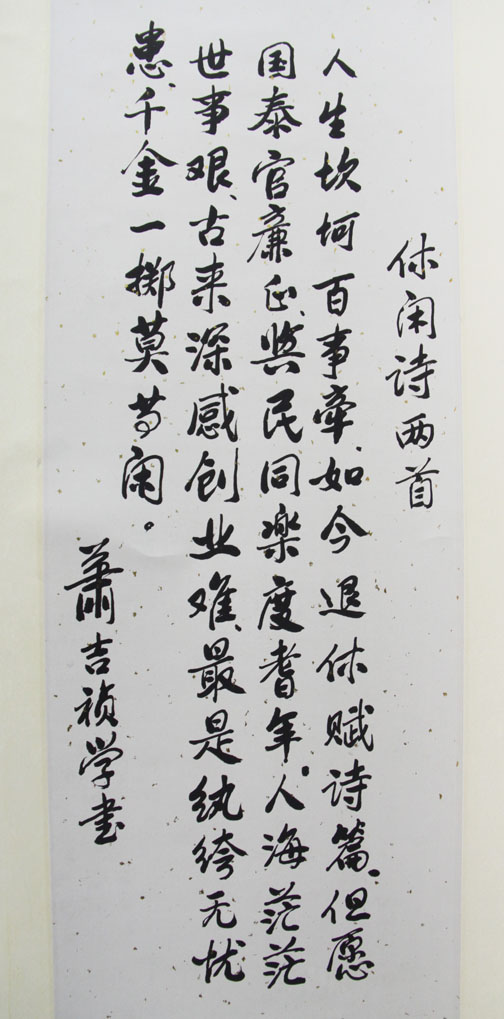 休闲诗两首
人生坎坷百事牵、如今退休赋诗篇、但愿
国泰官廉正、与民同乐度耆年。人海茫茫
世事艰、古来深感创业难、最是纨绔无忧
患、千金一掷莫等闲。
萧吉祯学书